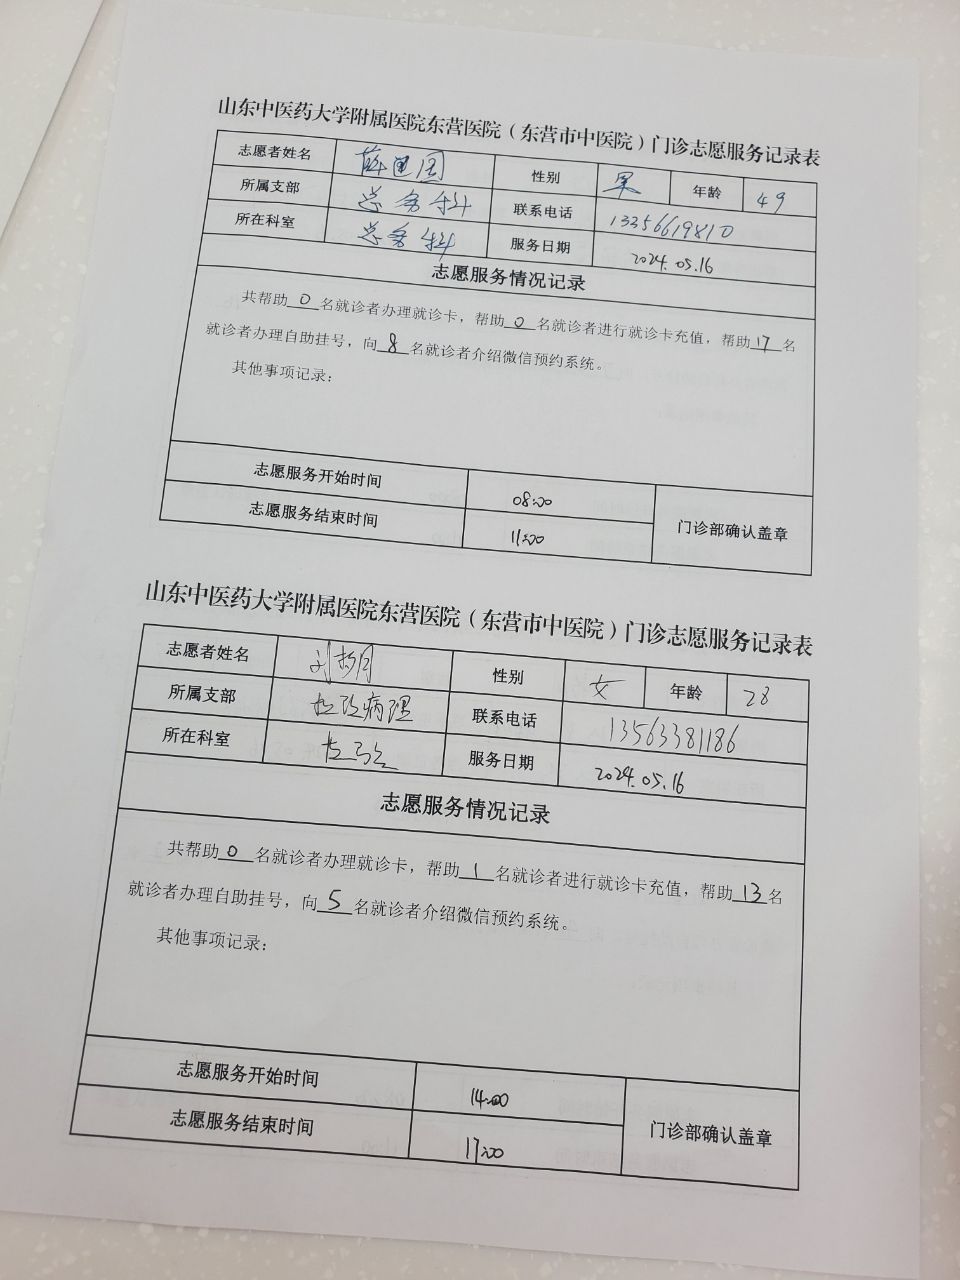 山东中医药大学附属医院东营医院（东营市中医院）门诊志愿服务记录表
志愿者姓名 性别 男 年龄 49
所属支部 总务科 联系电话 13256619810
所在科室 总务科 服务日期 2024.05.16
志愿服务情况记录
共帮助0名就诊者办理就诊卡，帮助0名就诊者进行就诊卡充值，帮助17名
就诊者办理自助挂号，向8名就诊者介绍微信预约系统。
其他事项记录：
志愿服务开始时间 08:00
志愿服务结束时间 11:00 门诊部确认盖章
山东中医药大学附属医院东营医院（东营市中医院）门诊志愿服务记录表
志愿者姓名 性别 女 年龄 28
所属支部 检验病理 联系电话 13563381186
所在科室 服务日期 2024.05.16
志愿服务情况记录
共帮助0名就诊者办理就诊卡，帮助1名就诊者进行就诊卡充值，帮助13名
就诊者办理自助挂号，向5名就诊者介绍微信预约系统。
其他事项记录：
志愿服务开始时间 14:00
志愿服务结束时间 17:00 门诊部确认盖章